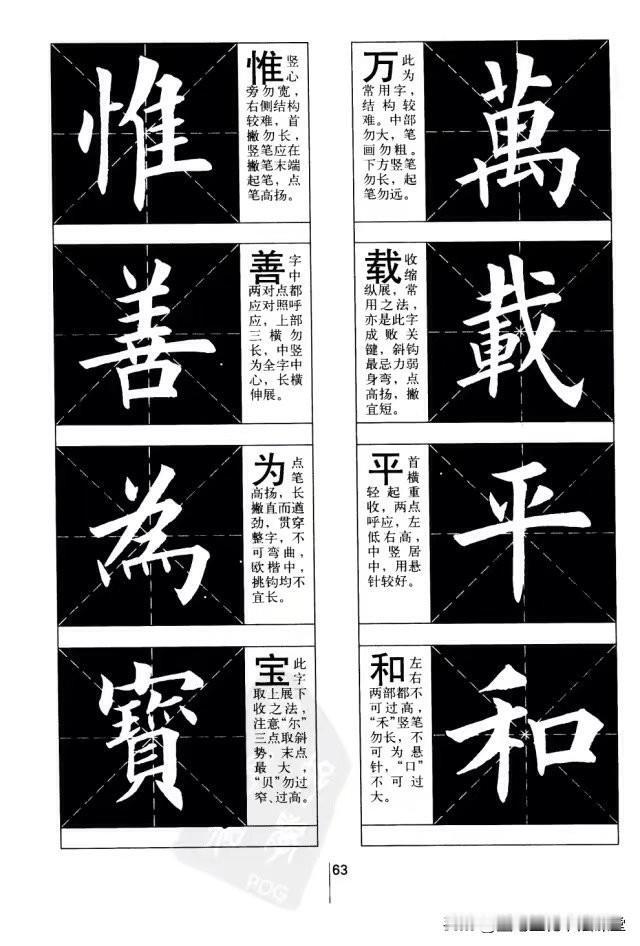 惟
惟 竖
心
旁勿宽，
右侧结构
较难，首
撇勿长，
竖笔应在
撇笔末端
起笔，点
笔高扬。
善
善 字
中
两对点都
应对照呼
应，上部
三横勿
长，中竖
为全字中
心，长横
伸展。
為
为 点
笔
高扬，长
撇直而遒
劲，贯穿
整字，不
可弯曲，
欧楷中，
挑钩均不
宜长。
寶
宝 此
字
取上展下
收之法，
注意“尔”
三点取斜
势，末点
最大，
“贝”勿过
窄、过高。
万 此
为
常用字，
结构较
难。中部
勿大，笔
画勿粗。
下方竖笔
勿长，起
笔勿远。
萬
载 收
缩
纵展，常
用之法，
亦是此字
成败关
键，斜钩
最忌力弱
身弯，点
高扬，撇
宜短。
載
平 首
横
轻起重
收，两点
呼应，左
低右高，
中竖居
中，用悬
针较好。
平
和 左
右
两部都不
可过高，
“禾”竖笔
勿长，不
可为悬
针，“口”
不可过
大。
和
63
PDG